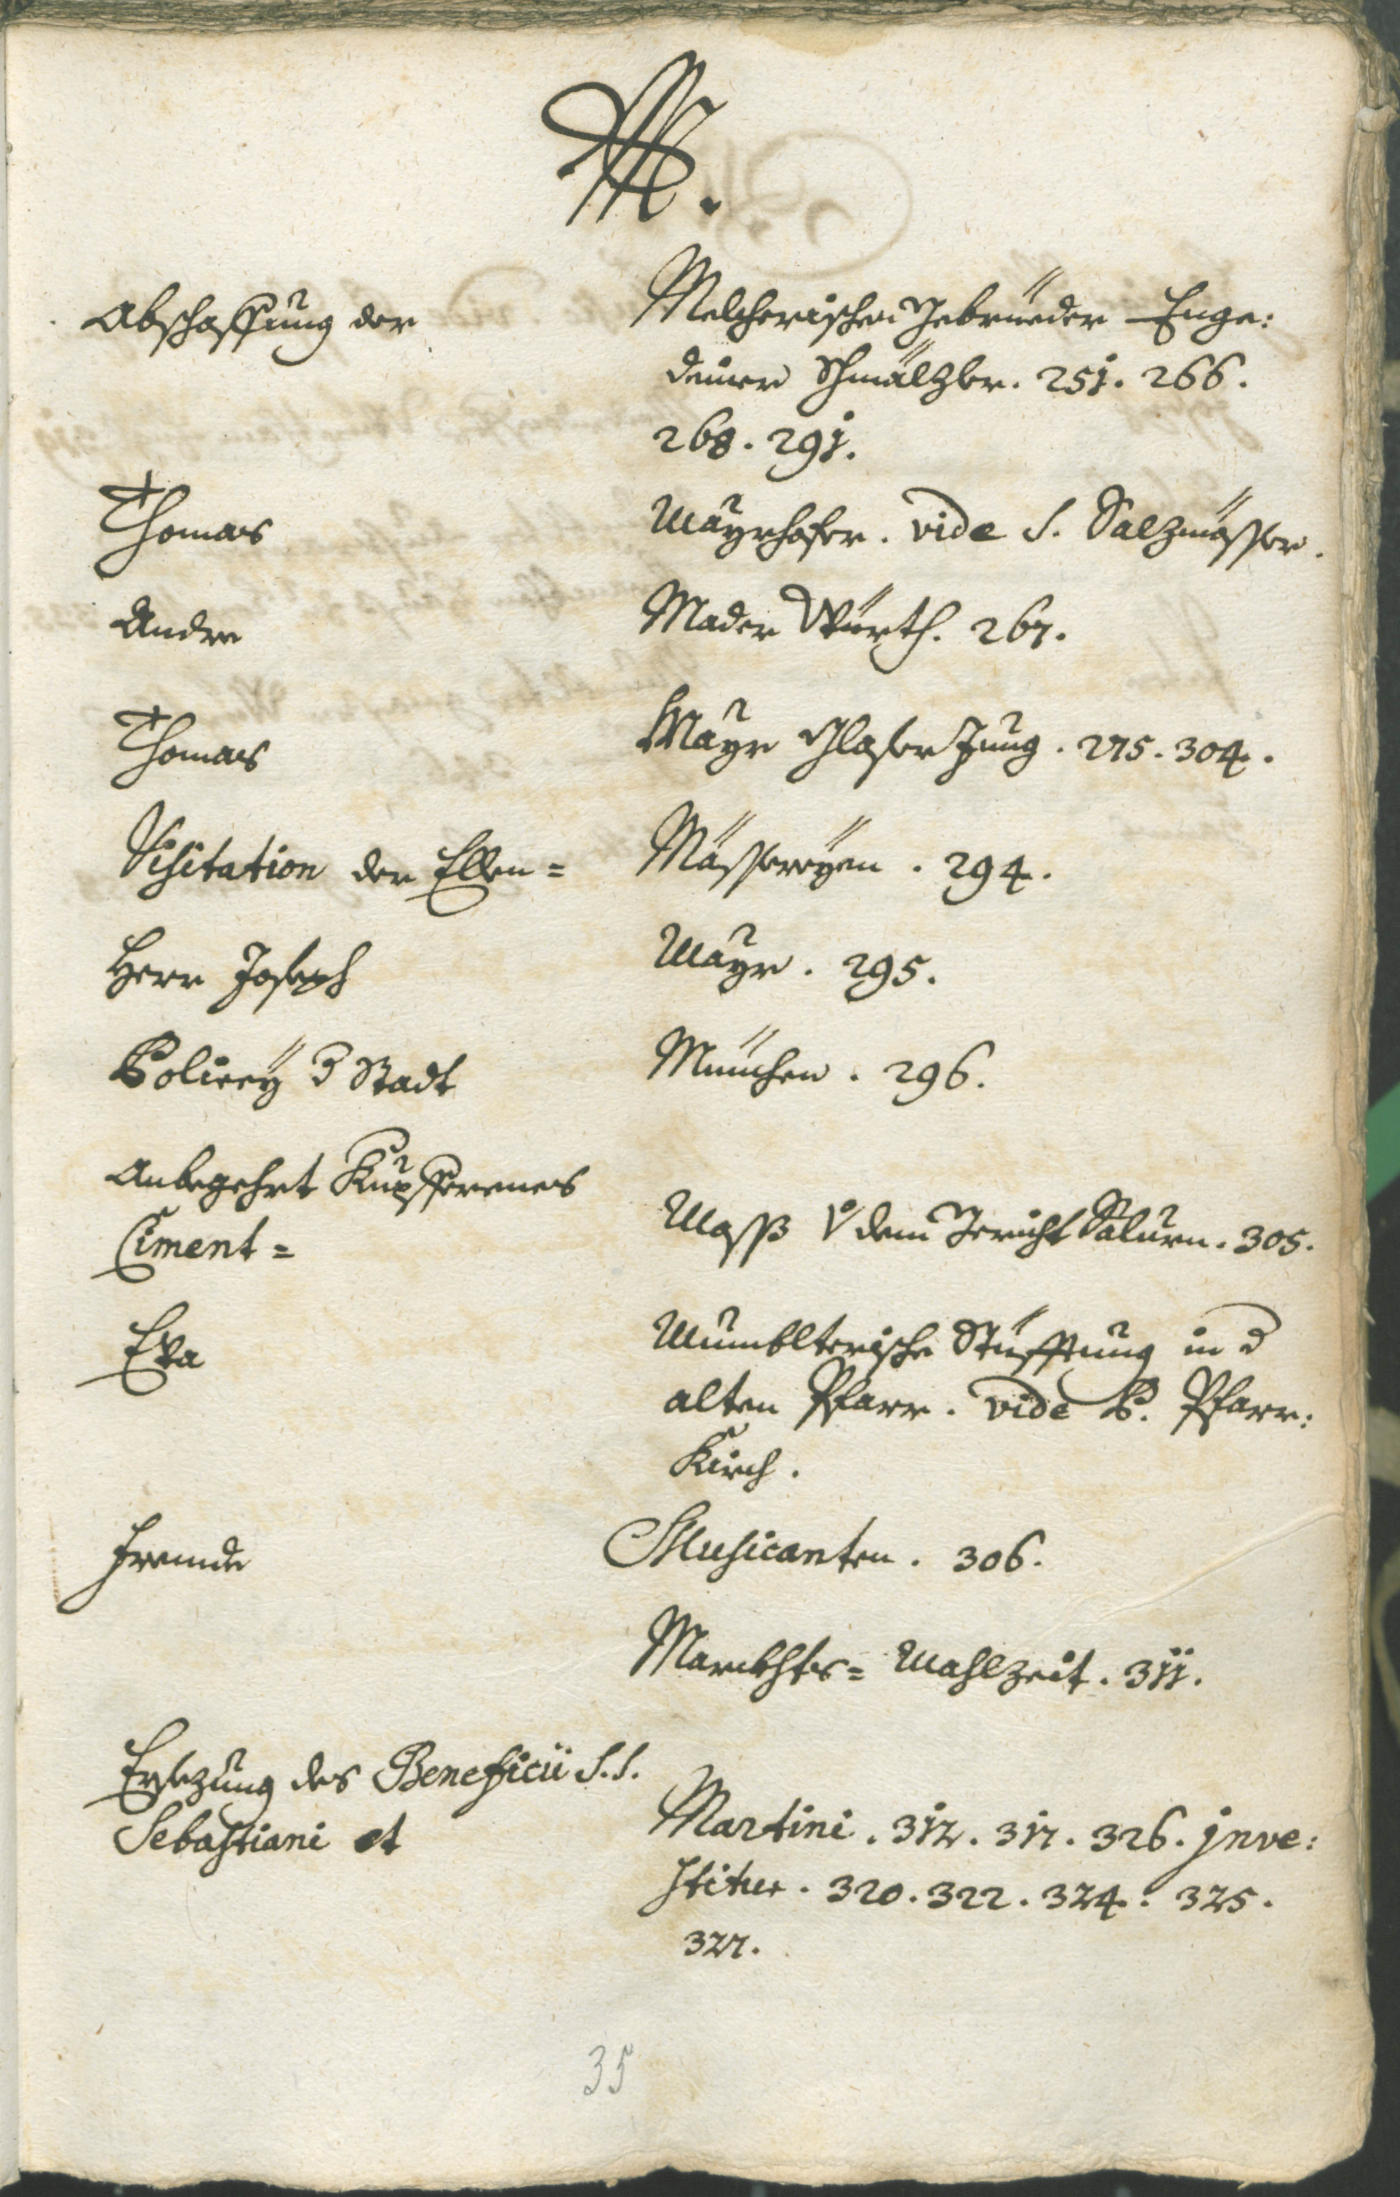 M.
Abschaffung der Melcherischen Gebrüeder Enge:
deiner Schmälzler. 251. 266.
268. 291.
Thomas Mayrhofer. vide S. Salzmösser.
Andre Mader Würth. 267.
Thomas Mayr Glaser Jung. 275. 304.
Visitation der Ellen= Mässereyen. 294.
Herr Joseph Mayr. 295.
Policey d Stadt München. 296.
Anbegehrt Kupfferenes
Ciment= Mass v dem Gericht Salurn. 305.
Eva Mumblterische Stüfftung in d
alten Pfarr. vide P. Pfarr:
Kirch.
Fremde Musicanten. 306.
Marckhts= Mahlzeit. 311.
Ersezung des Beneficii S.S.
Sebastiani et Martini. 312. 317. 326. jnve:
stitur. 320. 322. 324. 325.
327.
35